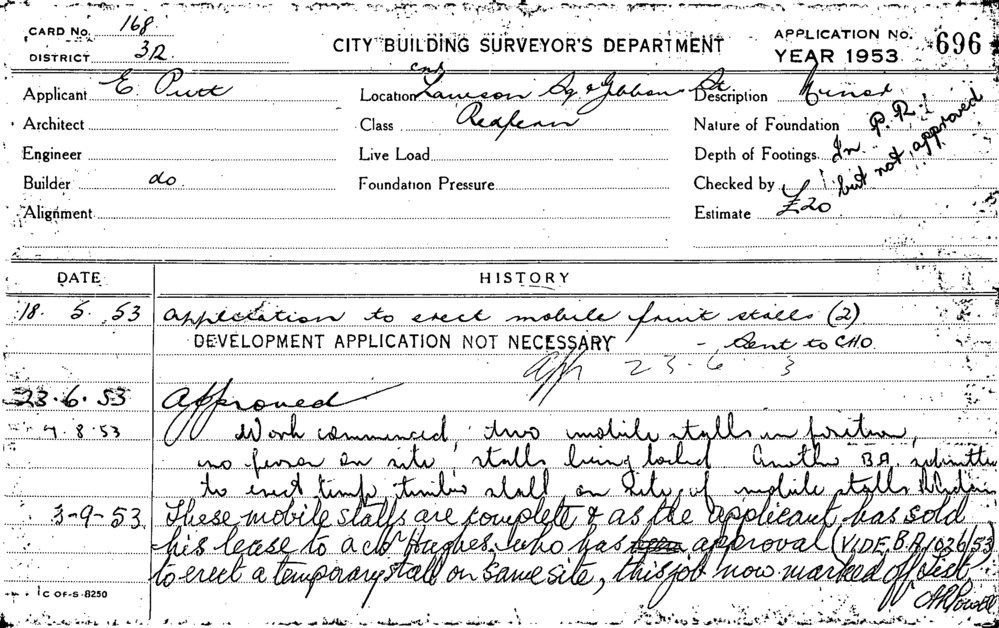 CARD No. 168
DISTRICT 3R
CITY BUILDING SURVEYOR'S DEPARTMENT
APPLICATION No. 696
YEAR 1953
Applicant E. Putt
Architect
Engineer
Builder do
Alignment
Location cnr Lawson Sq & Gibbons St
Class Redfern
Live Load
Foundation Pressure
Description Minor
Nature of Foundation
Depth of Footings
Checked by
Estimate £20
In P.R.
but not approved
DATE HISTORY
18. 5. 53 Application to erect mobile fruit stalls (2)
DEVELOPMENT APPLICATION NOT NECESSARY - Sent to CHO.
23.6 3
23.6.53 Approved
7.8.53 Work commenced, two mobile stalls in position,
no person on site, stalls being locked Another B.A. submitted
to erect temp timber stall on site of mobile stalls
3-9-53. These mobile stalls are complete & as the applicant has sold
his lease to a Mr Hughes who has approval (VIDE. B.A 1026/53)
to erect a temporary stall on same site, this job now marked off list.
A R Powell
1 C OF-S 8250